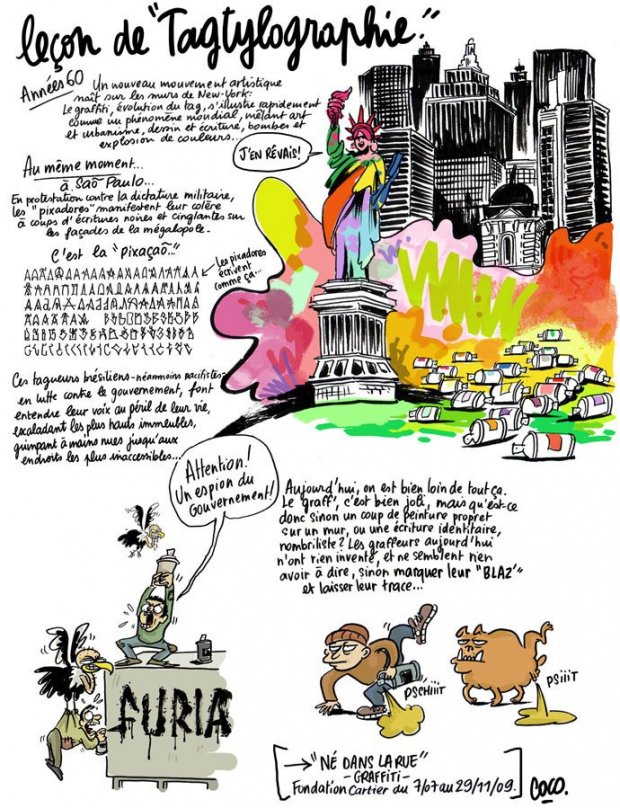 leçon de "Tagtylographie."
Années 60 Un nouveau mouvement artistique
naît sur les murs de New-York:
Le graffiti, évolution du tag, s'illustre rapidement
comme un phénomène mondial, mêlant art
et urbanisme, dessin et écriture, bombes et
explosion de couleurs...
J'EN RÊVAIS!
Au même moment...
à São Paulo...
En protestation contre la dictature militaire,
les "pixadores" manifestent leur colère
à coups d'écritures noires et cinglantes sur
les façades de la mégalopole.
C'est la "pixaçaõ..."
Les pixadores
écrivent
comme ça...
Ces tagueurs brésiliens - néanmoins pacifistes -
en lutte contre le gouvernement, font
entendre leur voix au péril de leur vie,
escaladant les plus hauts immeubles,
grimpant à mains nues jusqu'aux
endroits les plus inaccessibles...
Attention!
Un espion du
Gouvernement!
Aujourd'hui, on est bien loin de tout ça.
Le "graff", c'est bien joli, mais qu'est-ce
donc sinon un coup de peinture propret
sur un mur, ou une écriture identitaire,
nombriliste? Les graffeurs aujourd'hui
n'ont rien inventé, et ne semblent rien
avoir à dire, sinon marquer leur "BLAZ"
et laisser leur trace...
FURIA
PSCHIIIT
PSIIIT
"NÉ DANS LA RUE"
-GRAFFITI-
Fondation Cartier du 7/07 au 29/11/09.
COCO.